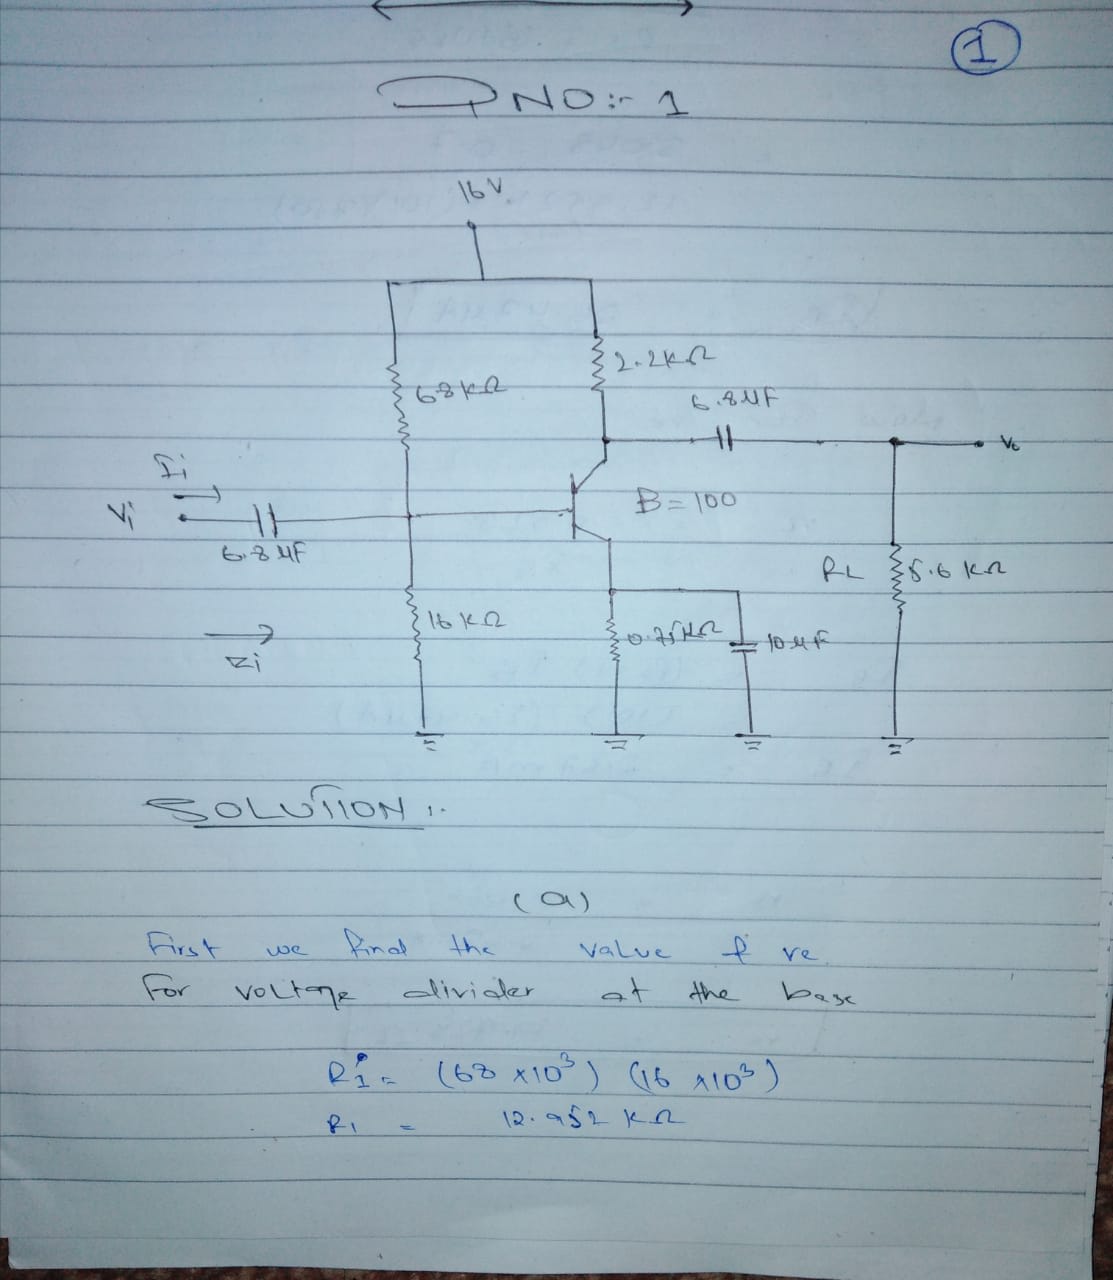 1
QNO:- 1
16V
2.2kΩ
68kΩ
6.8µF
Vo
Ii
Vi
B=100
6.8µF
RL 5.6 kΩ
16 kΩ
0.75kΩ
10µF
Zi
SOLUTION:-
(a)
First we find the value of re.
For voltage divider at the base
Ri = (68 x10³) (16 x10³)
R1 = 12.952 kΩ